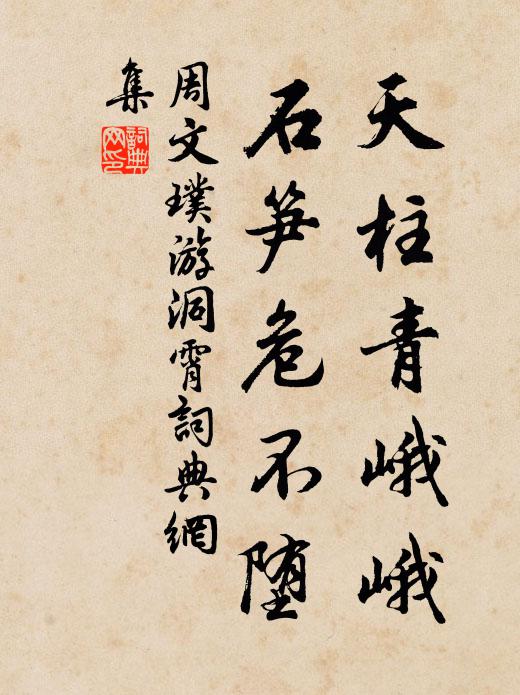 天柱青峨峨
石笋危不堕
周文璞游洞霄詞典網
集
詞典
网印